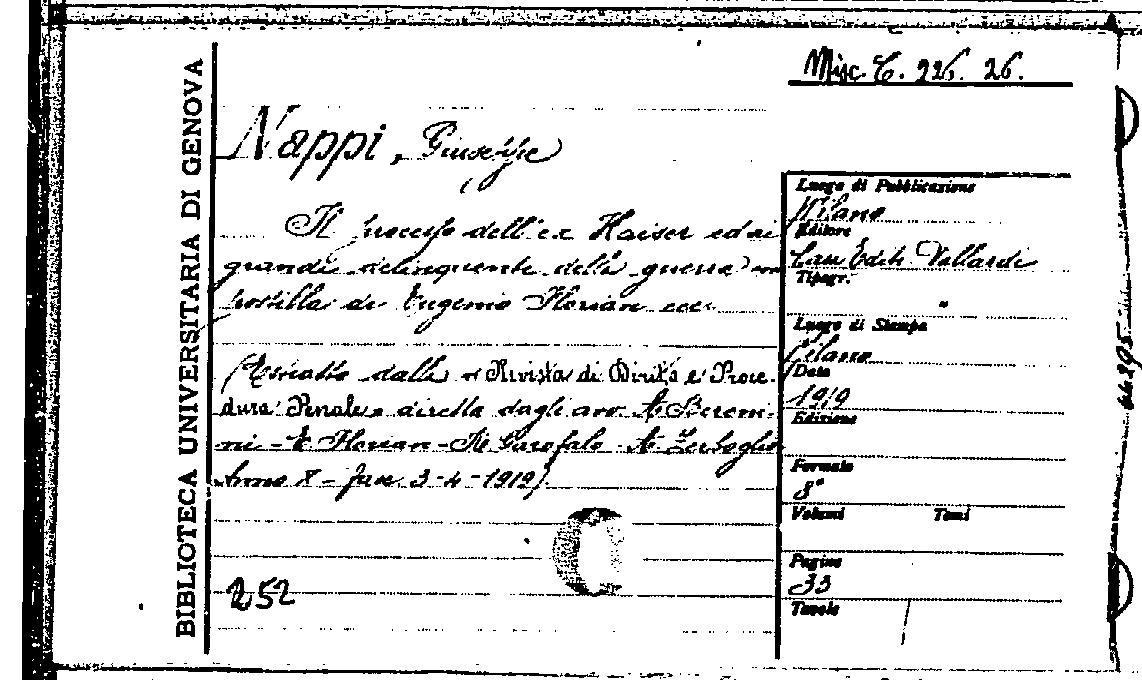 BIBLIOTECA UNIVERSITARIA DI GENOVA
Misc. C. 226. 26.
Nappi, Giuseppe
Il processo dell'ex Kaiser ed ai
grandi delinquenti della guerra con
postilla di Eugenio Florian ecc.
(Estratto dalla «Rivista di Diritto e Proce-
dura Penale» diretta dagli avv. A. Berem-
ni - E. Florian - R. Garofalo - A. Zerboglio
Anno X - fasc. 3-4 - 1919)
252
Luogo di Pubblicazione
Milano
Editore
Casa Edit. Vallardi
Tipogr.
"
Luogo di Stampa
Milano
Data
1919
Edizione
Formato
8°
Volumi Tomi
Pagine
33
Tavole